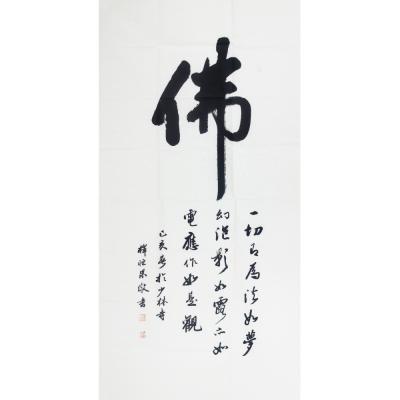 佛
一切有為法如夢
幻泡影如露亦如
電應作如是觀
己亥春於少林寺
釋恒
敬書